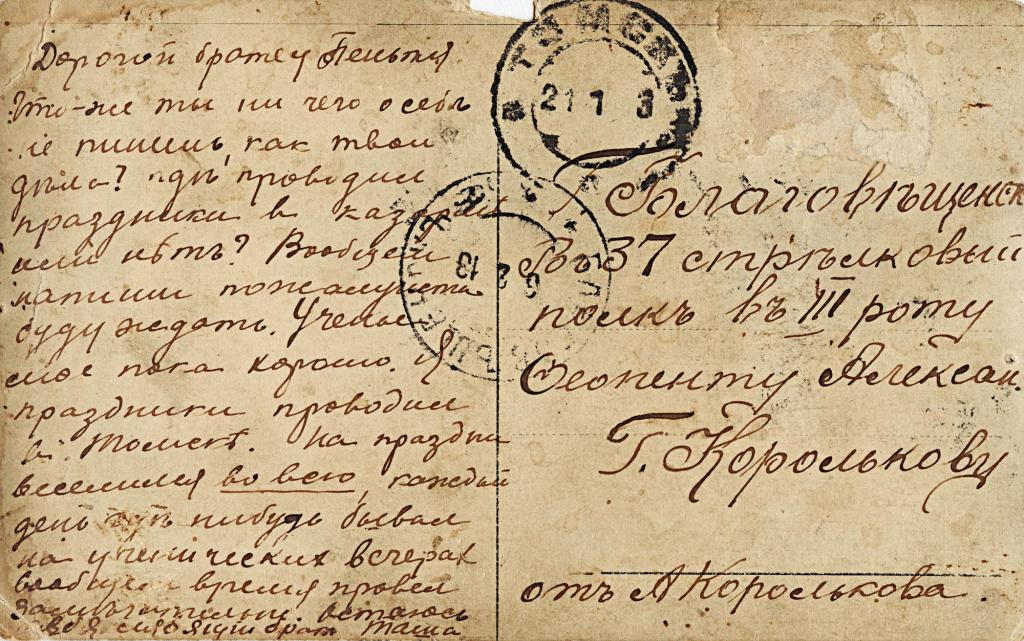 Дорогой братец
Что-же ты ни чего о себѣ
не пишешь, как твои
дѣла? гдѣ проводил
праздники в казарм
или нѣтъ? Вообщем
напиши пожалуйста
буду ждать. Ученье
мое пока хорошо. Я
праздники проводил
в Томскѣ. На праздн
веселился во всю, каждый
день гдѣ нибудь бывал
на ученических вечерах
вообщем время провел
замѣчательно. остаюсь
брат
ТОМСКЪ
21 1 3
6 2 13
Г Благовѣщенск
Въ 37 стрѣлковый
полкъ въ III роту
Алексан.
Г. Королькову
отъ А Королькова.